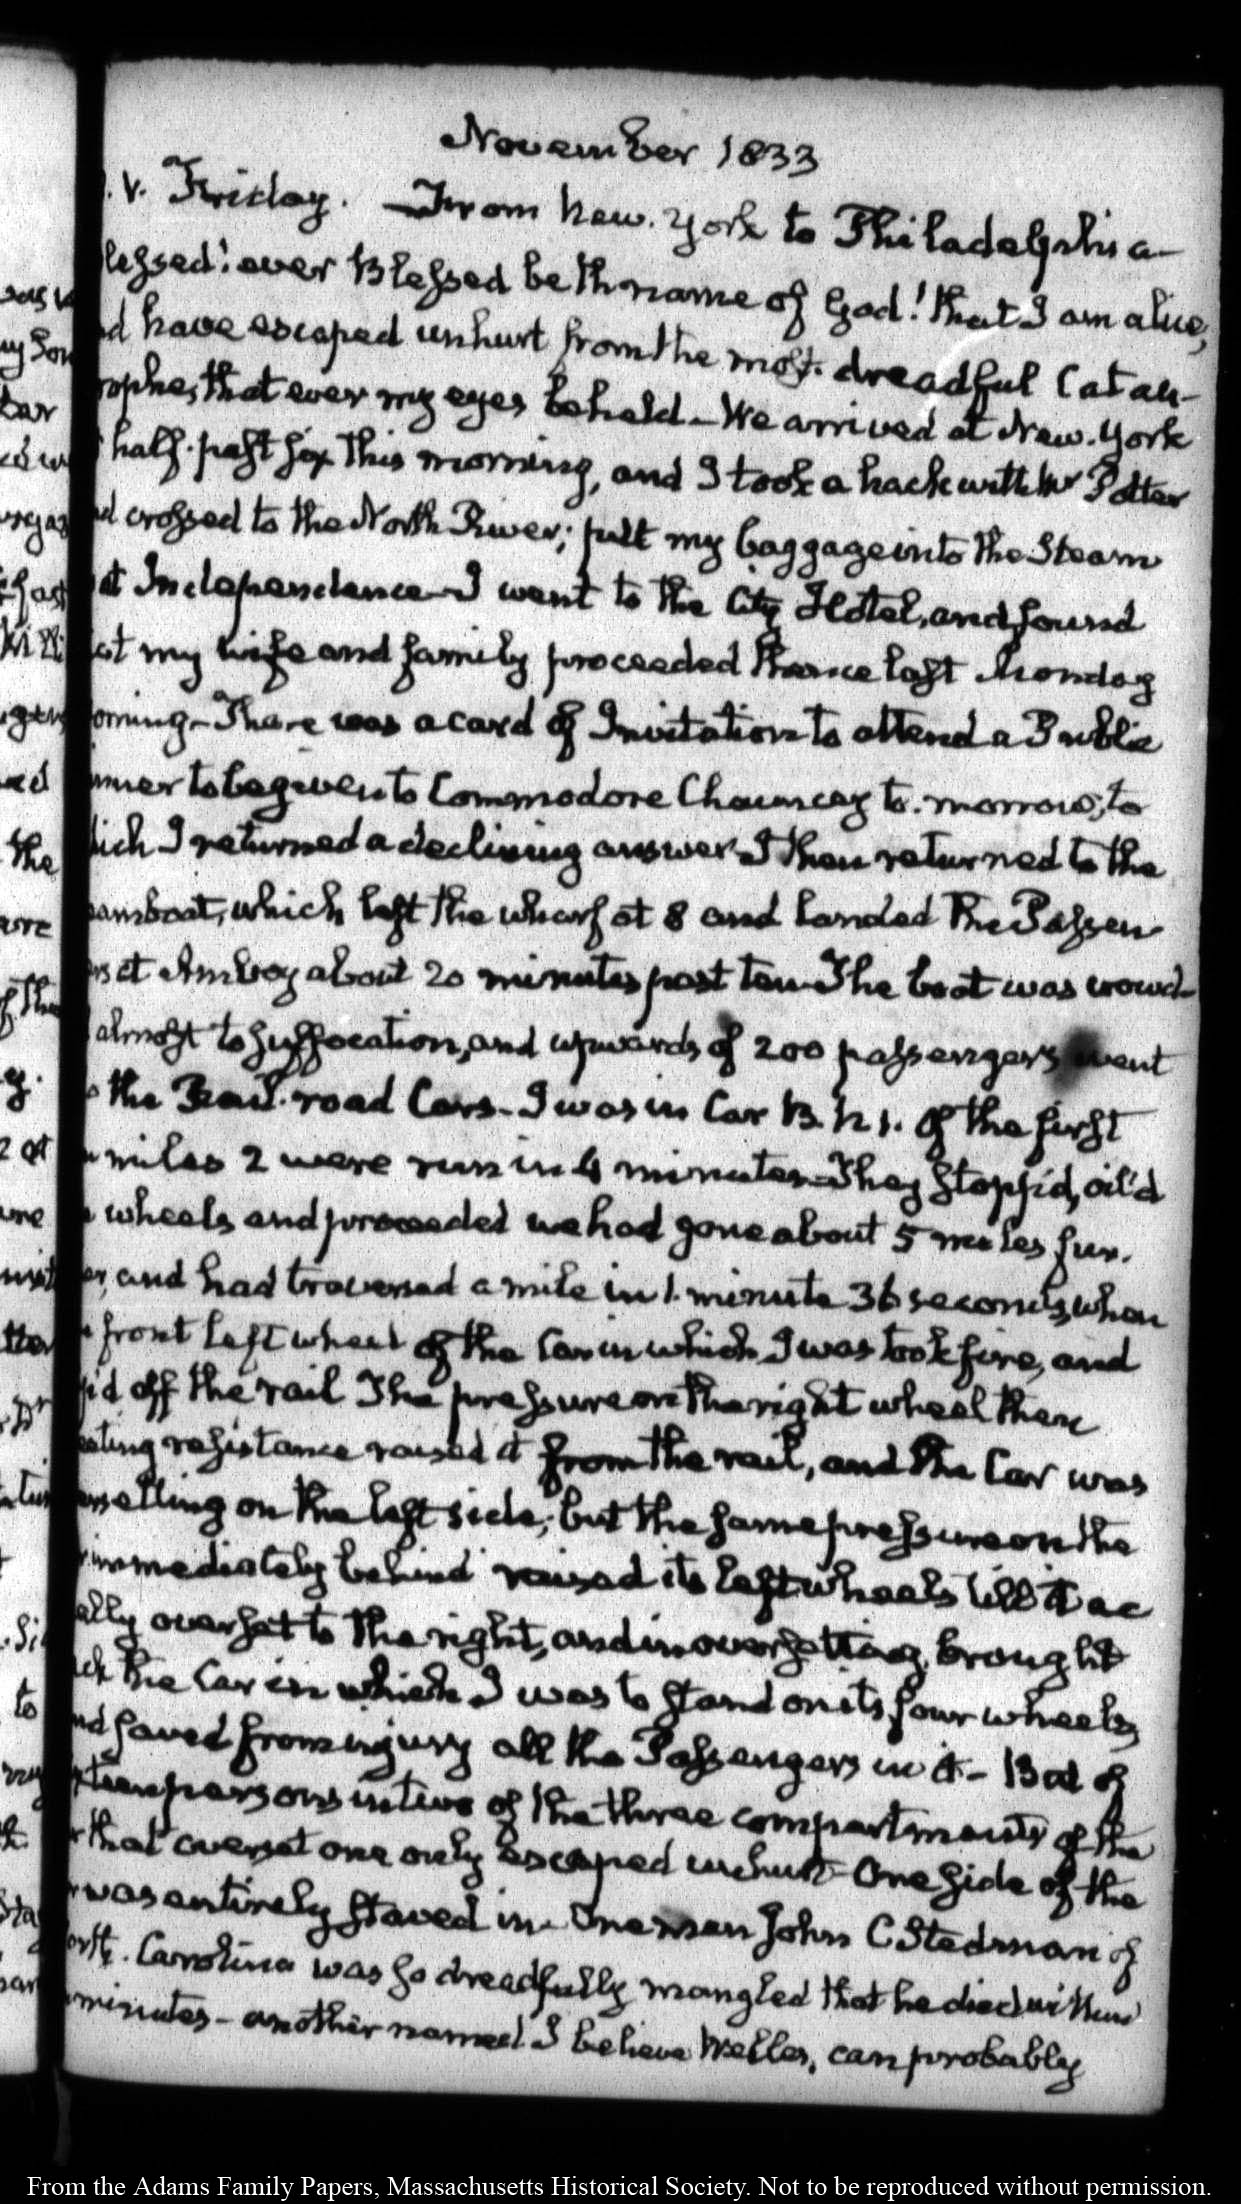 November 1833
. V. Friday. — From New-York to Philadelphia—
lessed! ever Blessed be th name of God! that I am alive,
nd have escaped unhurt from the most dreadful Catas-
rophe, that ever my eyes beheld — We arrived at New-York
half-past six this morning, and I took a hack with Mr Potter
nd crossed to the North River; put my baggage into the Steam
at Independence — I went to the City Hotel, and found
at my wife and family proceeded thence last Monday
orning — There was a card of Invitation to attend a Public
inner to be given to Commodore Chauncey to-morrow; to
hich I returned a declining answer — I then returned to the
eamboat, which left the wharf at 8 and landed the Passen
rs at Amboy about 20 minutes past ten — The boat was crowd-
almost to suffocation, and upwards of 200 passengers went
the Rail-road Cars — I was in Car B. N 1. of the first
miles 2 were run in 4 minutes — They stopp'd, oil'd
wheels and proceeded we had gone about 5 miles fur-
er, and had traversed a mile in 1. minute 36 seconds, when
front left wheel of the Car in which I was took fire, and
p'd off the rail The pressure on the right wheel then
eating resistance raised it from the rail, and the Car was
rsetting on the left side; but the same pressure on the
immediately behind raised its left wheels till it ac
ally overset to the right, and in oversetting, brought
ck the Car in which I was to stand on its four wheels
nd saved from injury all the Passengers in it — But of
xteen persons in two of the three compartments of the
r that overset one only escaped unhurt — One side of the
r was entirely staved in — One man John C Stedman of
orth-Carolina was so dreadfully mangled that he died within
minutes — another named I believe Welles, can probably
was
my Son
the
of the
2 at
to
my
From the Adams Family Papers, Massachusetts Historical Society. Not to be reproduced without permission.